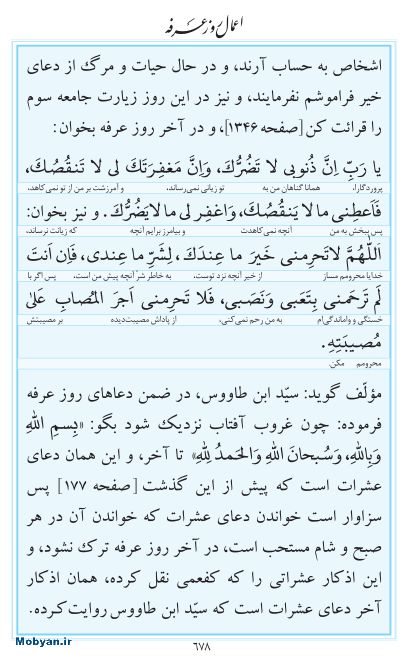 اعمال روز عرفه
اشخاص به حساب آرند، و در حال حیات و مرگ از دعای
خیر فراموشم نفرمایند، و نیز در این روز زیارت جامعه سوم
را قرائت کن [صفحه ۱۳۴۶]، و در آخر روز عرفه بخوان:
یا رَبِّ اِنَّ ذُنوبی لا تَضُرُّكَ، وَاِنَّ مَغفِرَتَكَ لی لا تَنقُصُكَ،
پروردگارا، همانا گناهان من به تو زیانی نمی‌رساند، و آمرزشت بر من از تو نمی‌کاهد،
فَاَعطِنی ما لا یَنقُصُكَ، وَاغفِر لی ما لا یَضُرُّكَ. و نیز بخوان:
پس ببخش به من آنچه نمی‌کاهدت و بیامرز برایم آنچه که زیانت نرساند،
اَللّٰهُمَّ لاتَحرِمنی خَیرَ ما عِندَكَ، لِشَرِّ ما عِندی، فَاِن اَنتَ
خدایا محرومم مساز از خیر آنچه نزد توست، به خاطر شرّ آنچه پیش من است، پس اگر با
لَم تَرحَمنی بِتَعَبی وَنَصَبی، فَلا تَحرِمنی اَجرَ المُصابِ عَلیٰ
خستگی و واماندگی‌ام به من رحم نمی‌کنی، از پاداش مصیبت‌دیده بر مصیبتش
مُصیبَتِهِ.
محرومم مکن.
مؤلّف گوید: سیّد ابن طاووس، در ضمن دعاهای روز عرفه
فرموده: چون غروب آفتاب نزدیک شود بگو: «بِسمِ اللهِ
وَبِاللهِ، وَسُبحانَ اللهِ وَالحَمدُ لِلّٰهِ» تا آخر، و این همان دعای
عشرات است که پیش از این گذشت [صفحه ۱۷۷] پس
سزاوار است خواندن دعای عشرات که خواندن آن در هر
صبح و شام مستحب است، در آخر روز عرفه ترک نشود، و
این اذکار عشراتی را که کفعمی نقل کرده، همان اذکار
آخر دعای عشرات است که سیّد ابن طاووس روایت کرده.
۶۷۸
Mobyan.ir